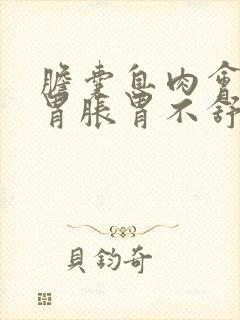 膽囊息肉會
胃脹胃不舒
貝鈞奇